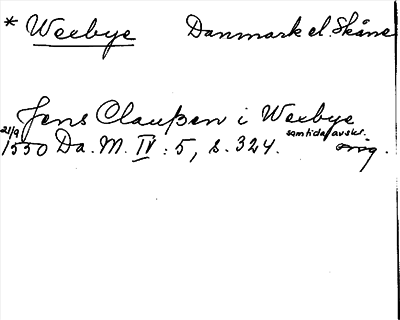 * Wexbye Danmark el. Skåne
Jens Claußen i Wexbye
21/9 1550 Da. M. IV : 5, s. 324. samtida avskr. orig.